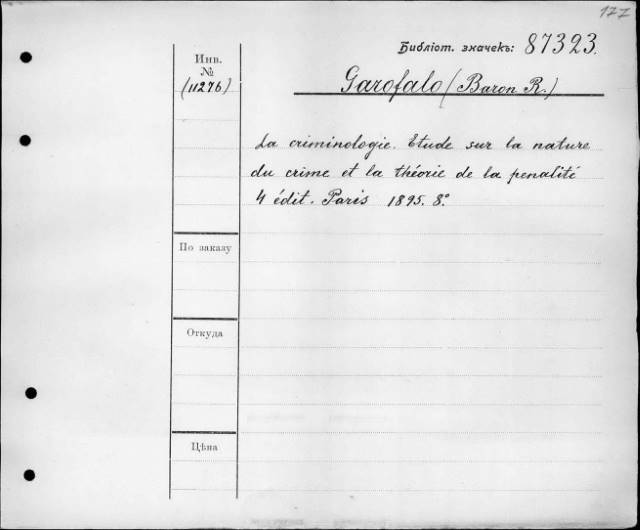 177
Библіот. значекъ: 87323.
Инв.
№
(11276)
Garofalo (Baron R.)
La criminologie. Etude sur la nature
du crime et la théorie de la penalité
4 édit. Paris 1895. 8°
По заказу
Откуда
Цѣна